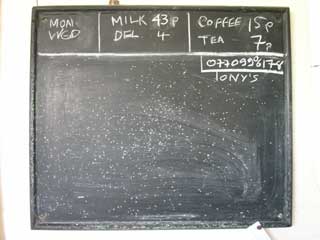 MON
WED
MILK 43p
DEL 4
COFFEE 15p
TEA 7p
TONY'S